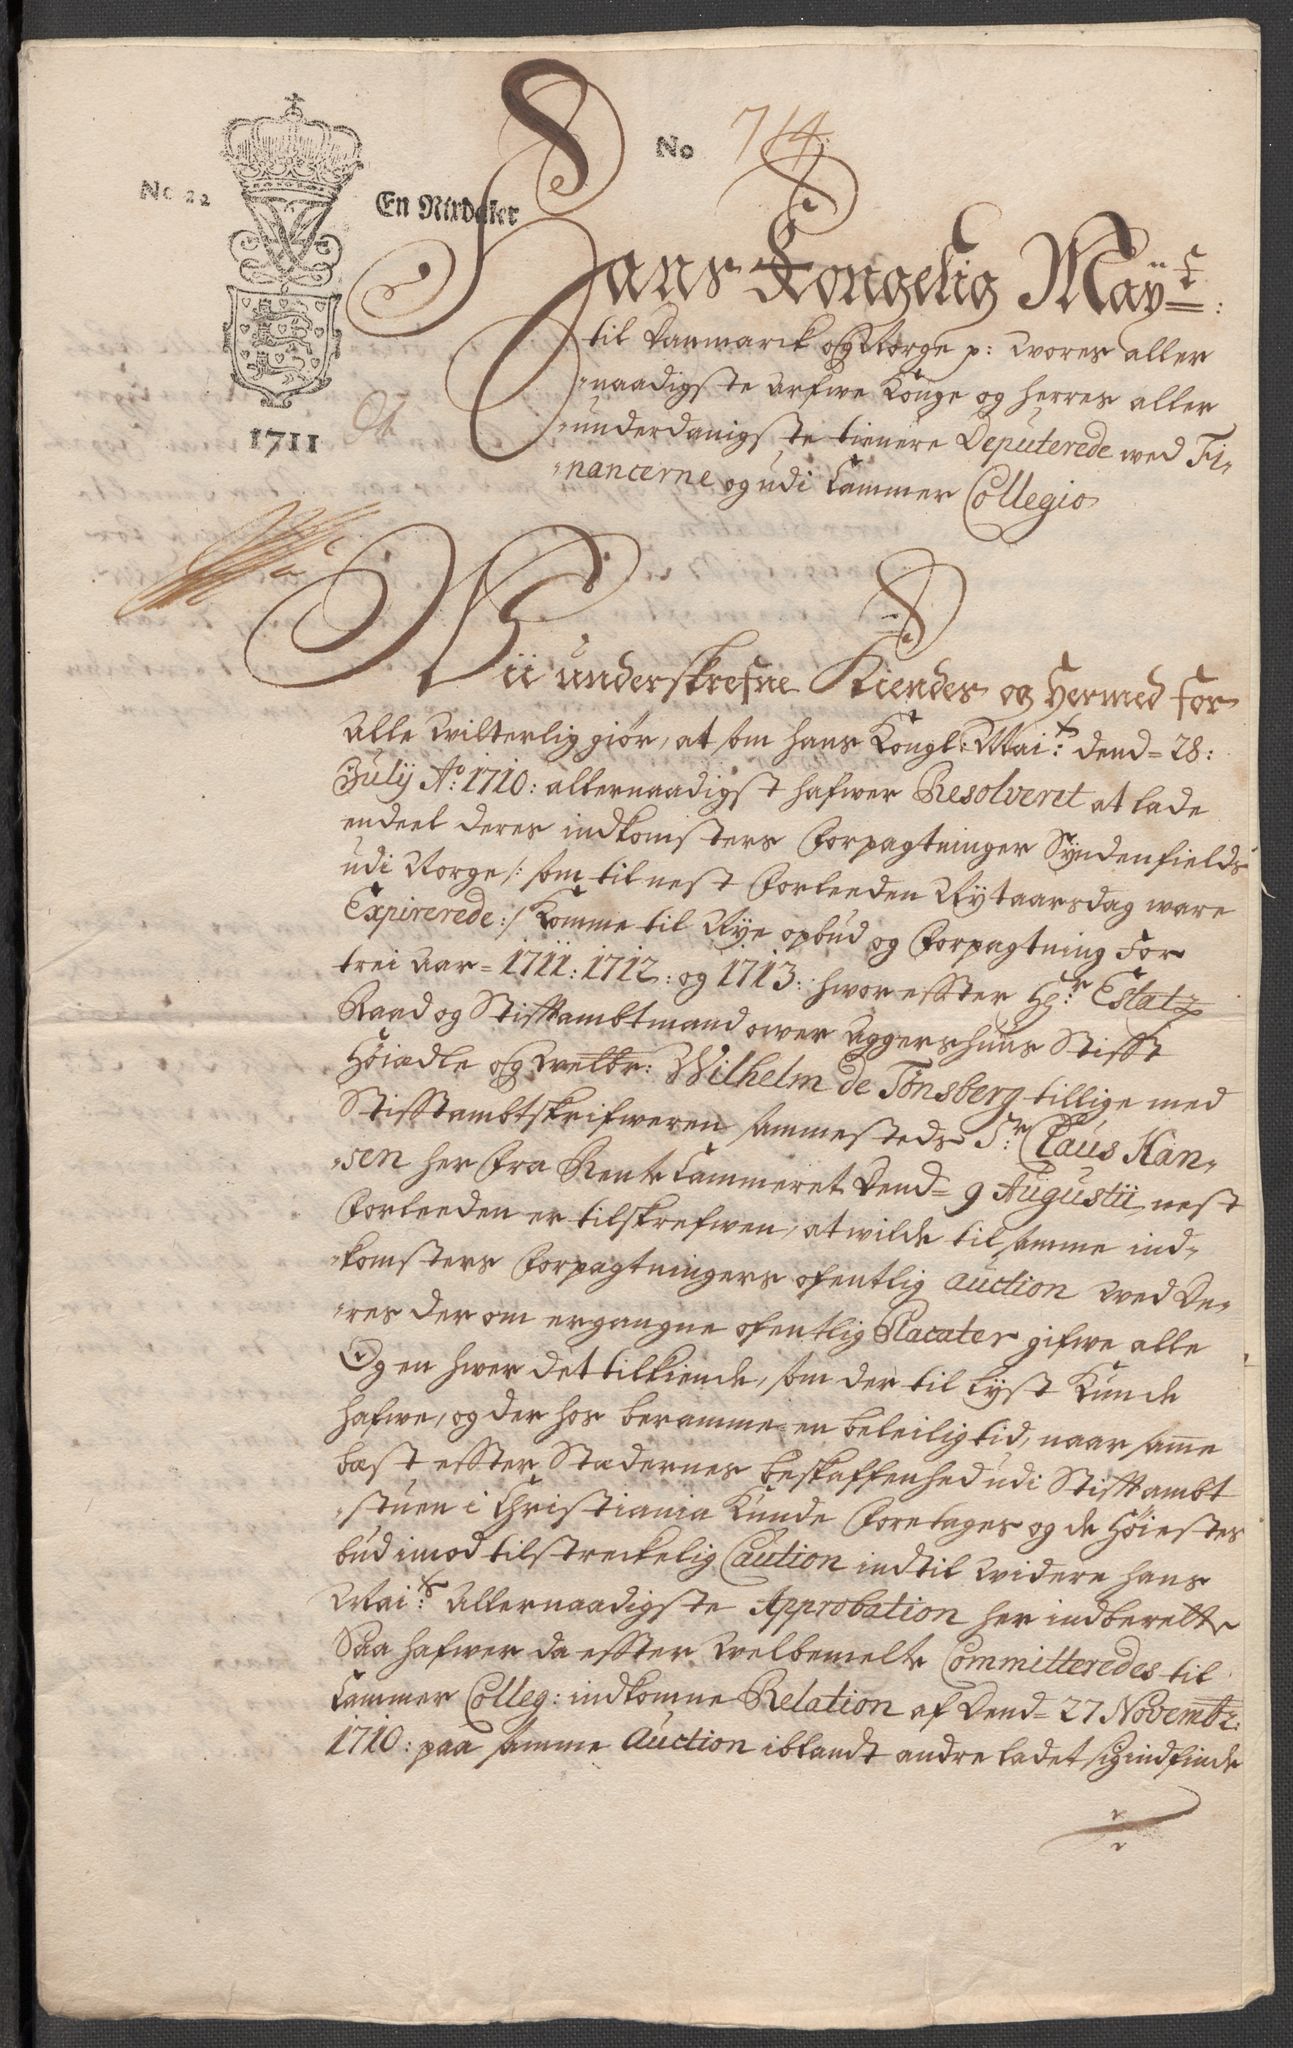 No 714
No 22
En Rixdaler
1711
Hans Kongelig Mayt:
til Danmarck og Norge p: Wores aller
=naadigste Arfwe Konge og Herres aller
=underdanigste tienere Deputerede wed Fi=
=nancerne og udi Cammer Collegio
Wii underskrefne Kiendes og Hermed for
Alle Witterlig giør, at som hans Kongl: Mait: dend= 28:
Julij Ao: 1710: allernaadigst hafwer Resolveret at lade
endeel deres indkomsters forpagtninger Syndenfields
udi Norge /: som til nest forleeden Nytaarsdag ware
Expirerede :/ Komme til Nye opbud og forpagtning for
trei Aar= 1711: 1712: og 1713: hwor effter Hr: Estatz
Raad og Stifftambtmand ower Aggershuus Stifft
Høiædle og Welbr: Wilhelm de Tønsberg tillige med
Stifftambtskrifweren sammesteds Sr: Claus Han=
=sen her fra Rente Cammeret Dend= 9 Augustii nest
forleeden er tilskrefwen, at wilde til samme ind=
=komsters forpagtningers ofentlig auction wed De=
=res der om ergangne ofentlig Placater gifwe alle
Og en hwer det tilkiende, som der til lyst Kunde
hafwe, og der hos beramme en beleilig tid, naar same
best effter Stædernes beskaffenhed udi Stifftambt
=stuen i Christiania Kunde foretages og de Høiestes
bud imod tilstreckelig Caution indtil widere hans
Mait: Allernaadigste Approbation her indberette
Saa hafwer da effter Welbemelte Committeredes til
Cammer Colleg: indkomne Relation af Dend= 27 Novembr:
1710: paa samme Auction iblandt andre ladet sig indfinde